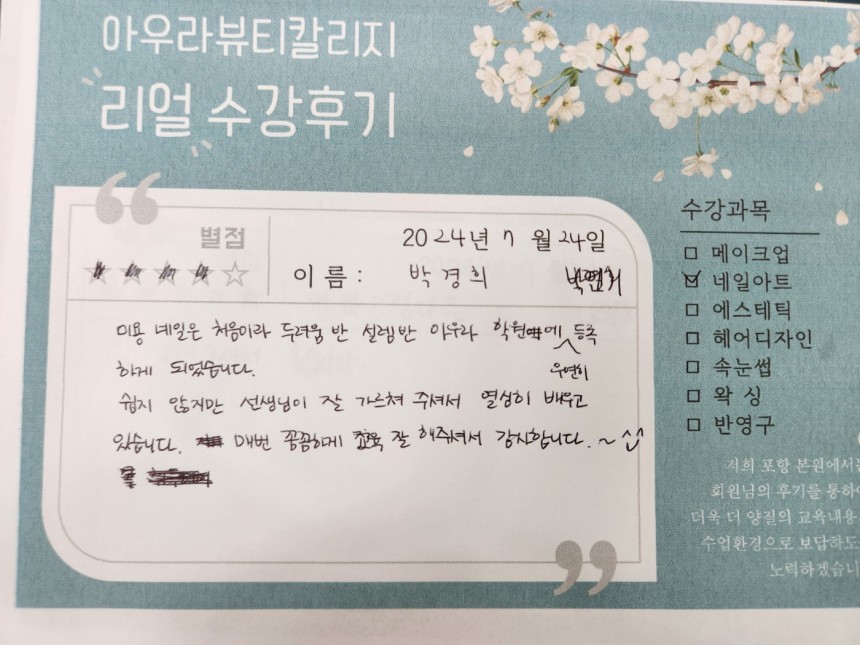 아우라뷰티칼리지
리얼 수강후기
별점
2024년 7월 24일
이름: 박경희
미용 네일은 처음이라 두려움 반 설렘반 아우라 학원에 등록
우연히
하게 되었습니다.
쉽지 않지만 선생님이 잘 가르쳐 주셔서 열심히 배우고
있습니다. 매번 꼼꼼하게 교육 잘 해주셔서 감사합니다.~^^
수강과목
메이크업
네일아트
에스테틱
헤어디자인
속눈썹
왁싱
반영구
저희 포항 본원에서는
회원님의 후기를 통하여
더욱 더 양질의 교육내용
수업환경으로 보답하도
노력하겠습니